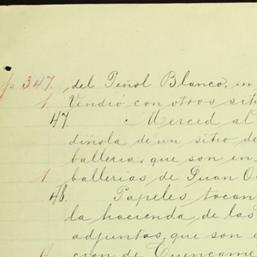 p 347. del Peñol Blanco, en
1 Vendió con otros sit
47. Merced al
dinsla de un sitio de
balleria, que son en
1 ballerias de Juan O
48. Papeles tocan
la hacienda de las
adjuntos, que son e
cion de Cuencamé